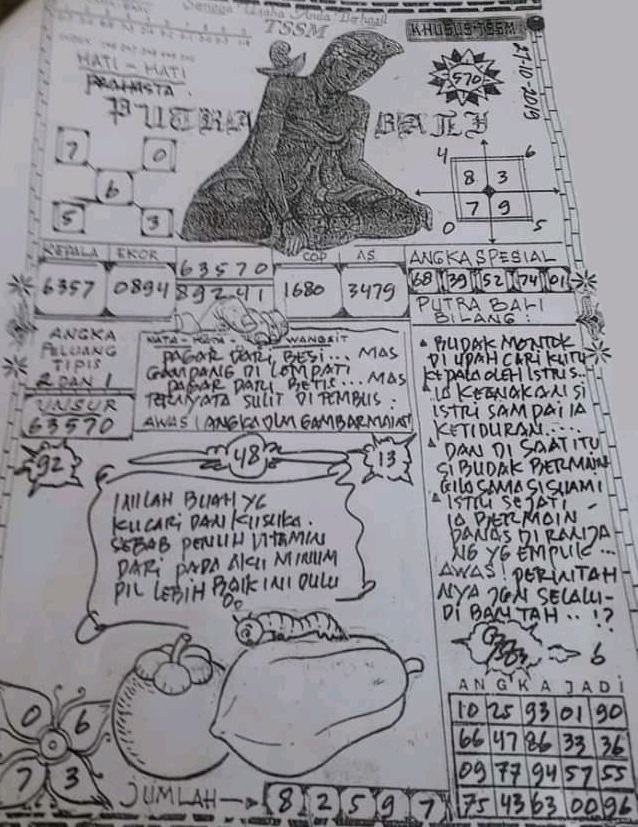 Semoga Usaha Anda Berhasil
TSSM
KHUSUS TSSM
27-10-2019
HATI - HATI
PUTRA BALI
570
7 0
6
5 3
4 6
8 3
7 9
0 5
KEPALA
6357
EKOR
0894
63570
89241
COP
1680
AS
3479
ANGKA SPESIAL
68 39 52 74 01
PUTRA BALI
BILANG :
ANGKA
PELUANG
TIPIS
2 DAN 1
UNSUR
63570
WANGSIT
PAGAR DARI BESI... MAS
GAMPANG DI LOMPATI
PAGAR DARI BETIS... MAS
TERNYATA SULIT DI TEMBUS.
AWAS ! ANGKA DLM GAMBAR MAIN !
BUDAK MONTOK
DI UPAH CARI KUTU
KEPALA OLEH ISTRI..
IA KEENAKAN SI
ISTRI SAMPAI IA
KETIDURAN....
DAN DI SAAT ITU
SI BUDAK BERMAIN
GILA SAMA SI SUAMI
ISTRI SEJATI
IA BERMAIN
PANAS DI RANJA
NG YG EMPUK...
AWAS ! PERINTAH
NYA JGN SELALU
DI BANTAH.. !?
92
48
13
INILAH BUAH YG
KUCARI DAN KUSUKA.
SEBAB PENUH VITAMIN
DARI PADA AKU MINUM
PIL LEBIH BAIK INI DULU
6
ANGKA JADI
10 25 93 01 90
66 47 86 33 36
09 77 94 57 55
75 43 63 00 96
0 6
7 3
JUMLAH
8 2 5 9 7